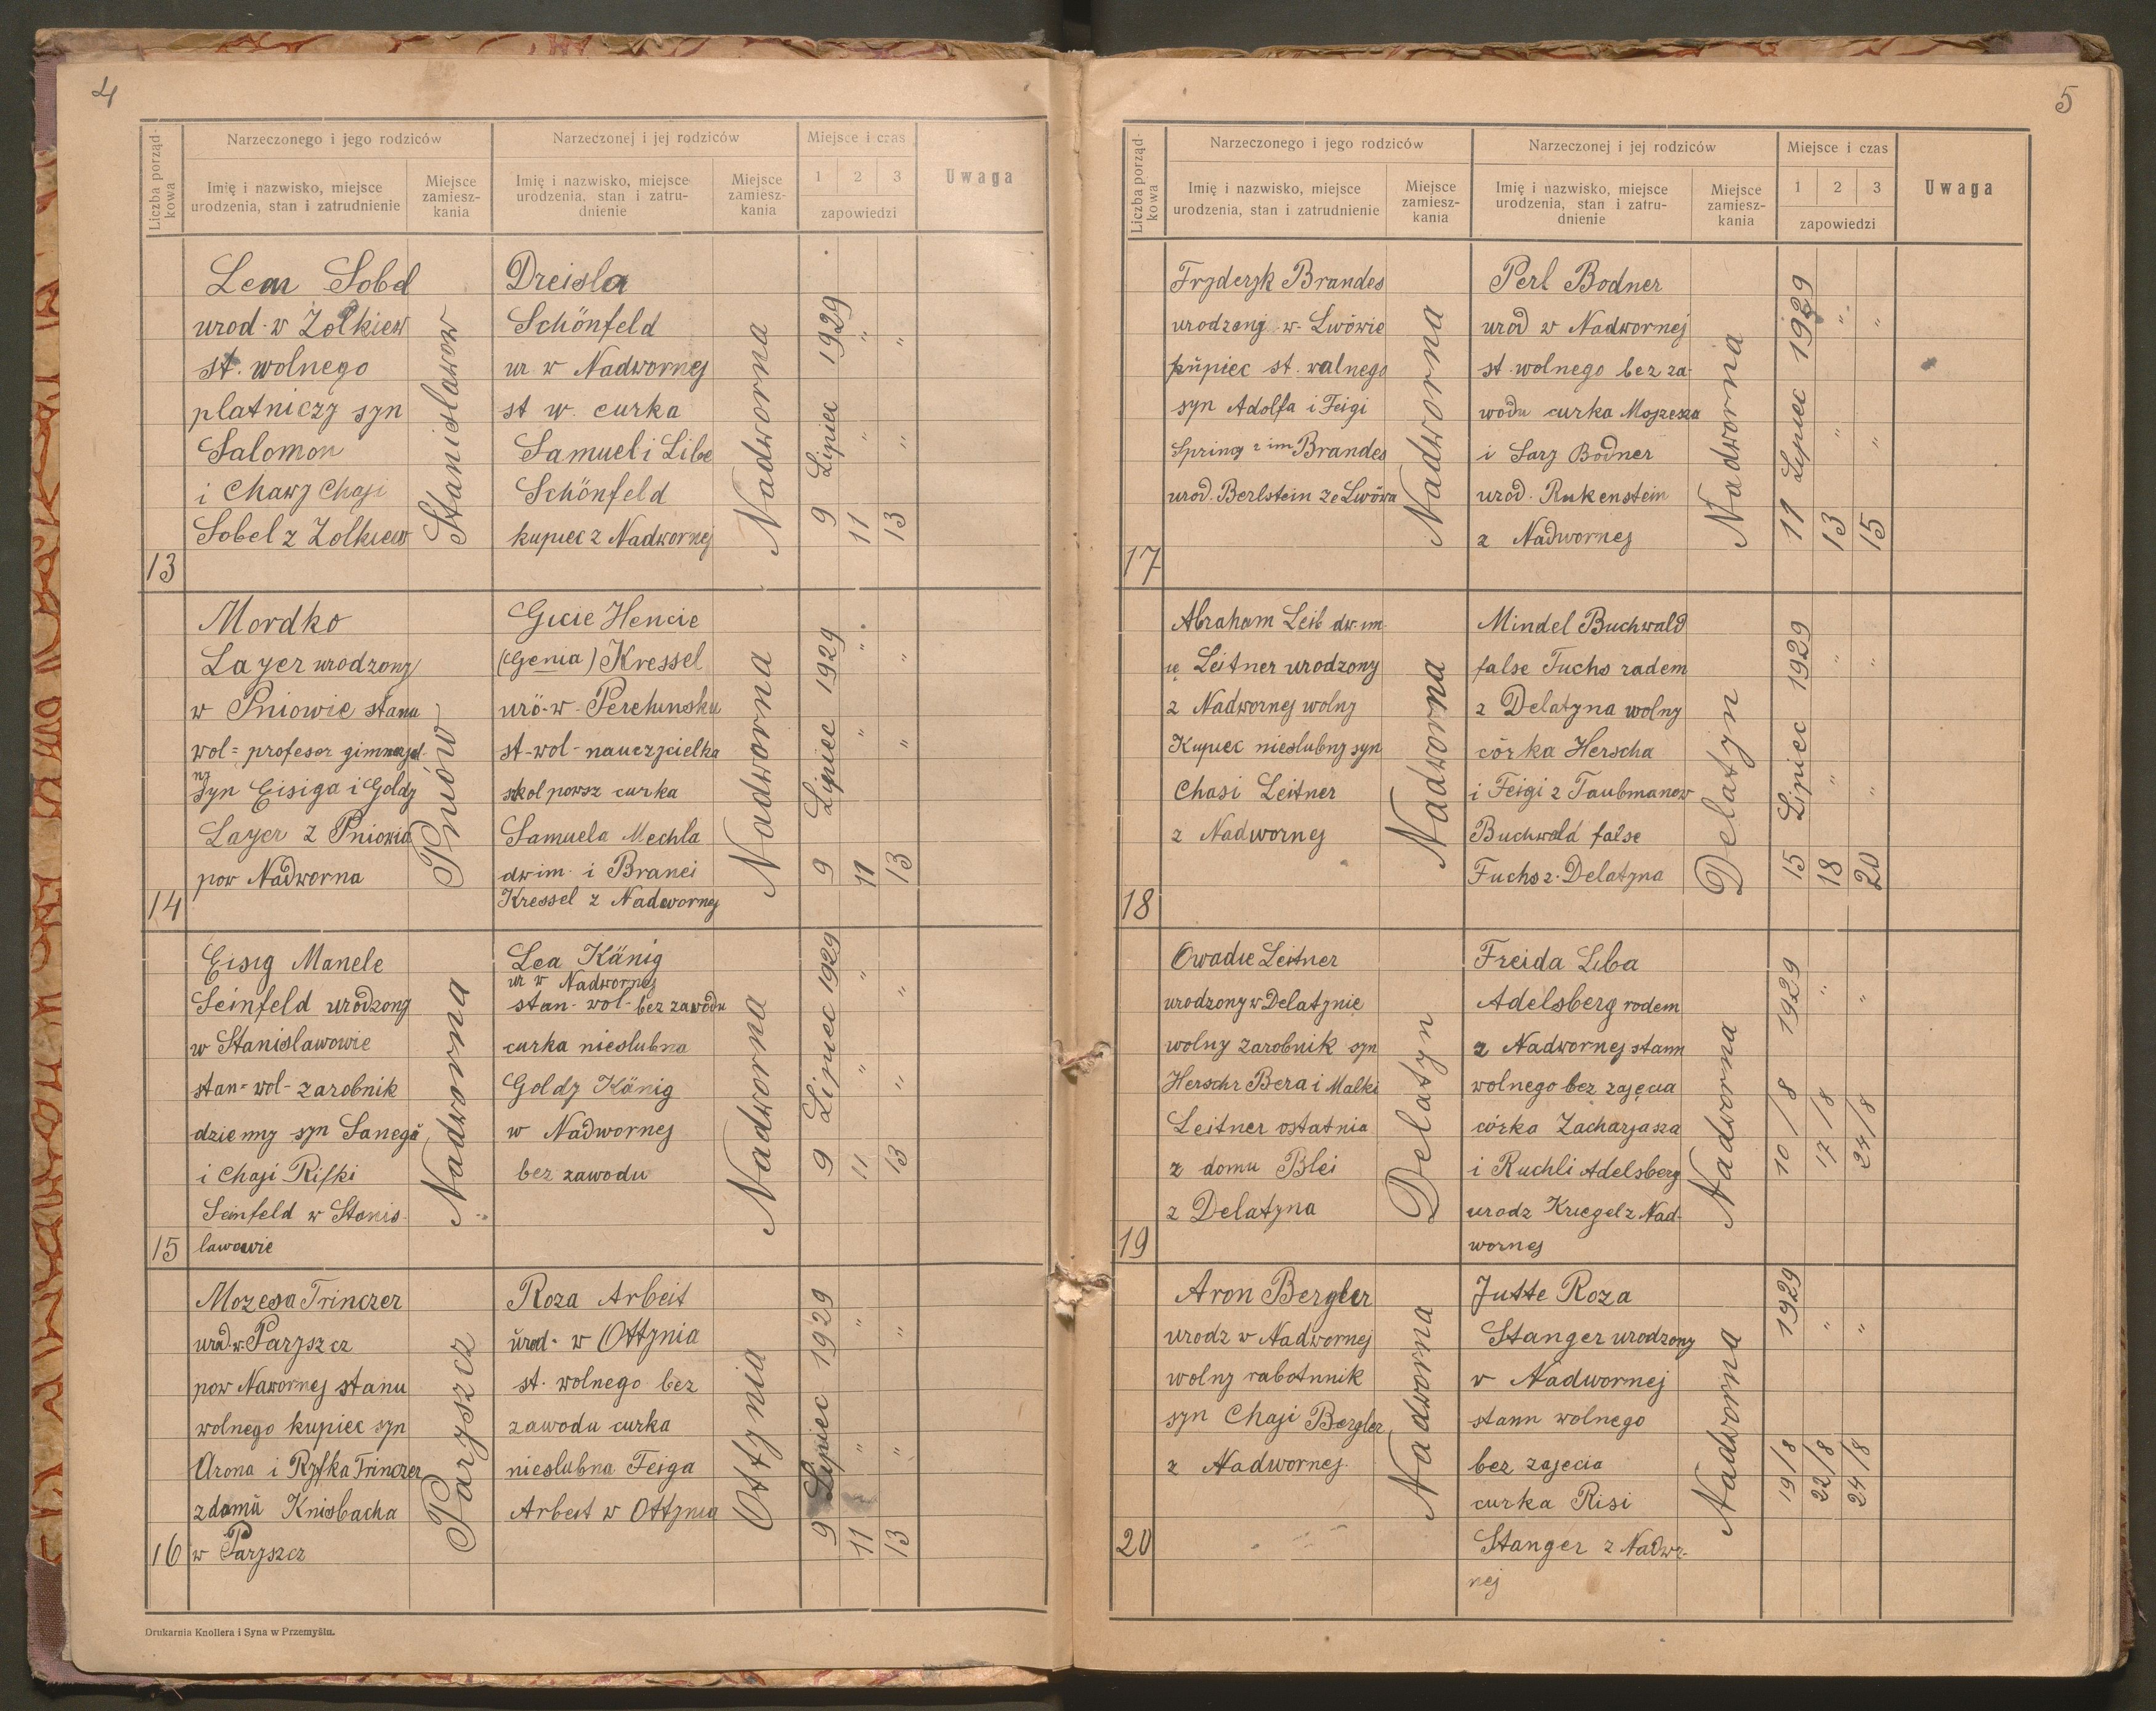 4
Liczba porząd-
kowa
Narzeczonego i jego rodziców
Imię i nazwisko, miejsce
urodzenia, stan i zatrudnienie
Miejsce
zamiesz-
kania
Narzeczonej i jej rodziców
Imię i nazwisko, miejsce
urodzenia, stan i zatru-
dnienie
Miejsce
zamiesz-
kania
Miejsce i czas
1 2 3
zapowiedzi
Uwaga
13
Leon Sobel
urod. w Zolkiew
st. wolnego
platniczy syn
Salomon
i Chawy Chaji
Sobel z Zolkiew
Stanislawow
Dreisla
Schönfeld
ur. w Nadwornej
st w. curka
Samuel i Libe
Schönfeld
kupiec z Nadwornej
Nadworna
9 Lipiec 1929
11 " "
13 " "
14
Mordko
Layer urodzony
w Pniowie stanu
wol= profesor gimnazjal-
ny
syn Eisiga i Goldy
Layer z Pniowia
pow Nadworna
Pniów
Gicie Hencie
(Genia) Kressel
uro-w-Perehinsku
st-wol-nauczycielka
szkol powsz curka
Samuela Mechla
dwim. i Branci
Kressel z Nadwornej
Nadworna
9 Lipiec 1929
11 " "
13 " "
15
Eisig Manele
Seinfeld urodzony
w Stanislawowie
stan=wol-zarobnik
dzienny syn Sanega
i Chaji Rifki
Seinfeld w Stanis-
lawowie
Nadworna
Lea Känig
ur w Nadwornej
stan-wol-bez zawodu
curka nieslubna
Goldy Känig
w Nadwornej
bez zawodu
Nadworna
9 Lipiec 1929
11 " "
13 " "
16
Mozesa Trinczer
urad. w. Paryszcz
pow Nawornej stanu
wolnego kupiec syn
Arona i Ryfka Trinczer
z domŭ Knisbacha
w Paryszcz
Paryszcz
Roza Arbeit
ŭrod. w Ottynia
st. wolnego bez
zawodu curka
nieslubna Feiga
Arbeit w Ottynia
Ottynia
9 Lipiec 1929
11 " "
13 " "
Drukarnia Knollera i Syna w Przemyślu.
5
Liczba porząd-
kowa
Narzeczonego i jego rodziców
Imię i nazwisko, miejsce
urodzenia, stan i zatrudnienie
Miejsce
zamiesz-
kania
Narzeczonej i jej rodziców
Imię i nazwisko, miejsce
urodzenia, stan i zatru-
dnienie
Miejsce
zamiesz-
kania
Miejsce i czas
1 2 3
zapowiedzi
Uwaga
17
Fryderyk Brandes
urodzony w-Lwówie
kŭpiec st. walnego
syn Adolfa i Feigi
Spring z im Brandes
urod. Berlstein ze Lwówa
Nadworna
Perl Bodner
urod w Nadwornej
st. wolnego bez za-
wodu curka Mojzesza
i Sary Bodner
urod. Rukenstein
z Nadwornej
Nadworna
11 Lipiec 1929
13 " "
15 " "
18
Abraham Leib dw. im.
Leitner urodzony
z Nadwornej wolny
Kupiec nieslubny syn
Chasi Leitner
z Nadwornej
Nadworna
Mindel Buchwald
false Fuchs radem
z Delatyna wolny
córka Herscha
i Feigi z Taubmanow
Buchwald false
Fuchs z. Delatyna
Delatyn
15 Lipiec 1929
18 " "
20 " "
19
Owadie Leitner
urodzony w Delatynie
wolny zarobnik syn
Herschr Bera i Malki
Leitner ostatnia
z domu Blei
z Delatyna
Delatyn
Freida Liba
Adelsberg rodem
z Nadwornej stanu
wolnego bez zajęcia
córka Zacharjasza
i Ruchli Adelsberg
urodz Kriegel z Nad-
wornej
Nadworna
10/8 1929
17/8 "
24/8 "
20
Aron Bergler
urodz w Nadwornej
wolny rabotnnik
syn Chaji Bergler
z Nadwornej.
Nadworna
Jutte Roza
Stanger urodzony
w Nadwornej
stann wolnego
bez zajecia
curka Risi
Stanger z Nadwr-
nej
Nadworna
19/8 1929
22/8 "
24/8 "